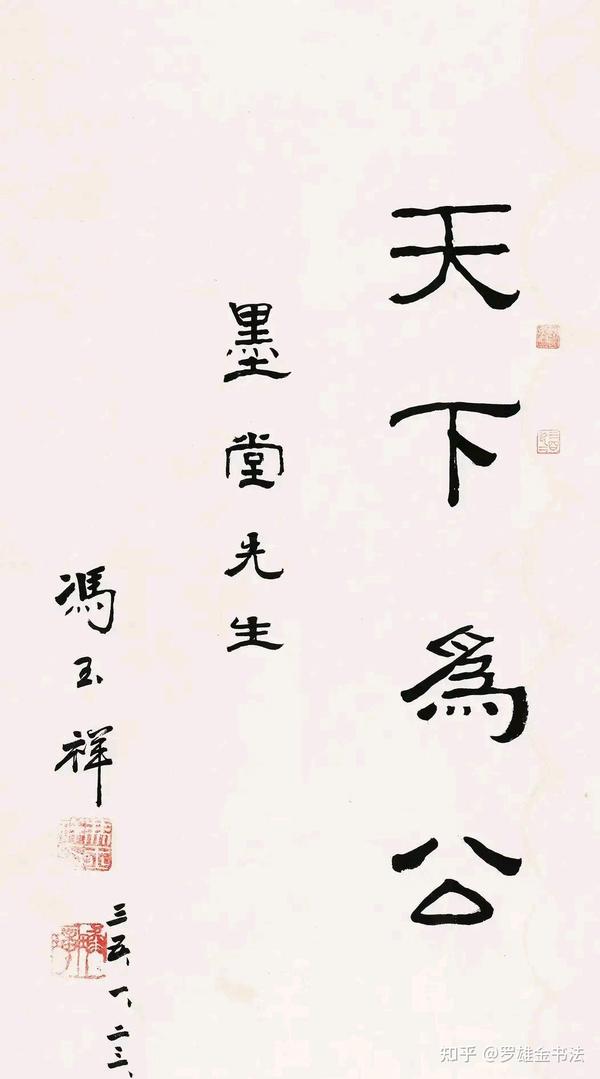 天下為公
墨堂先生
馮玉祥
三五、一、二三、
知乎 @罗雄金书法